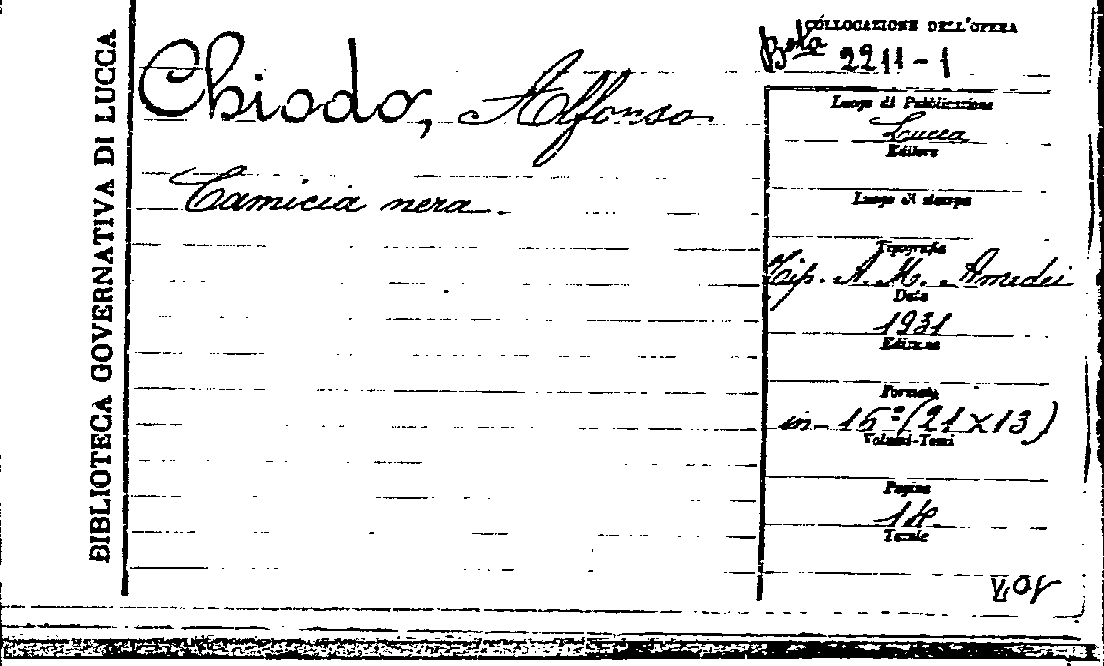 BIBLIOTECA GOVERNATIVA DI LUCCA
Chiodo, Alfonso
Camicia nera.
COLLOCAZIONE DELL'OPERA
Beta 2211-1
Luogo di Pubblicazione
Lucca
Editore
Luogo di stampa
Tipografia
Tip. A. M. Amedei
Data
1931
Edizione
Formato
in-16º (21x13)
Volumi-Tomi
Pagine
Tavole